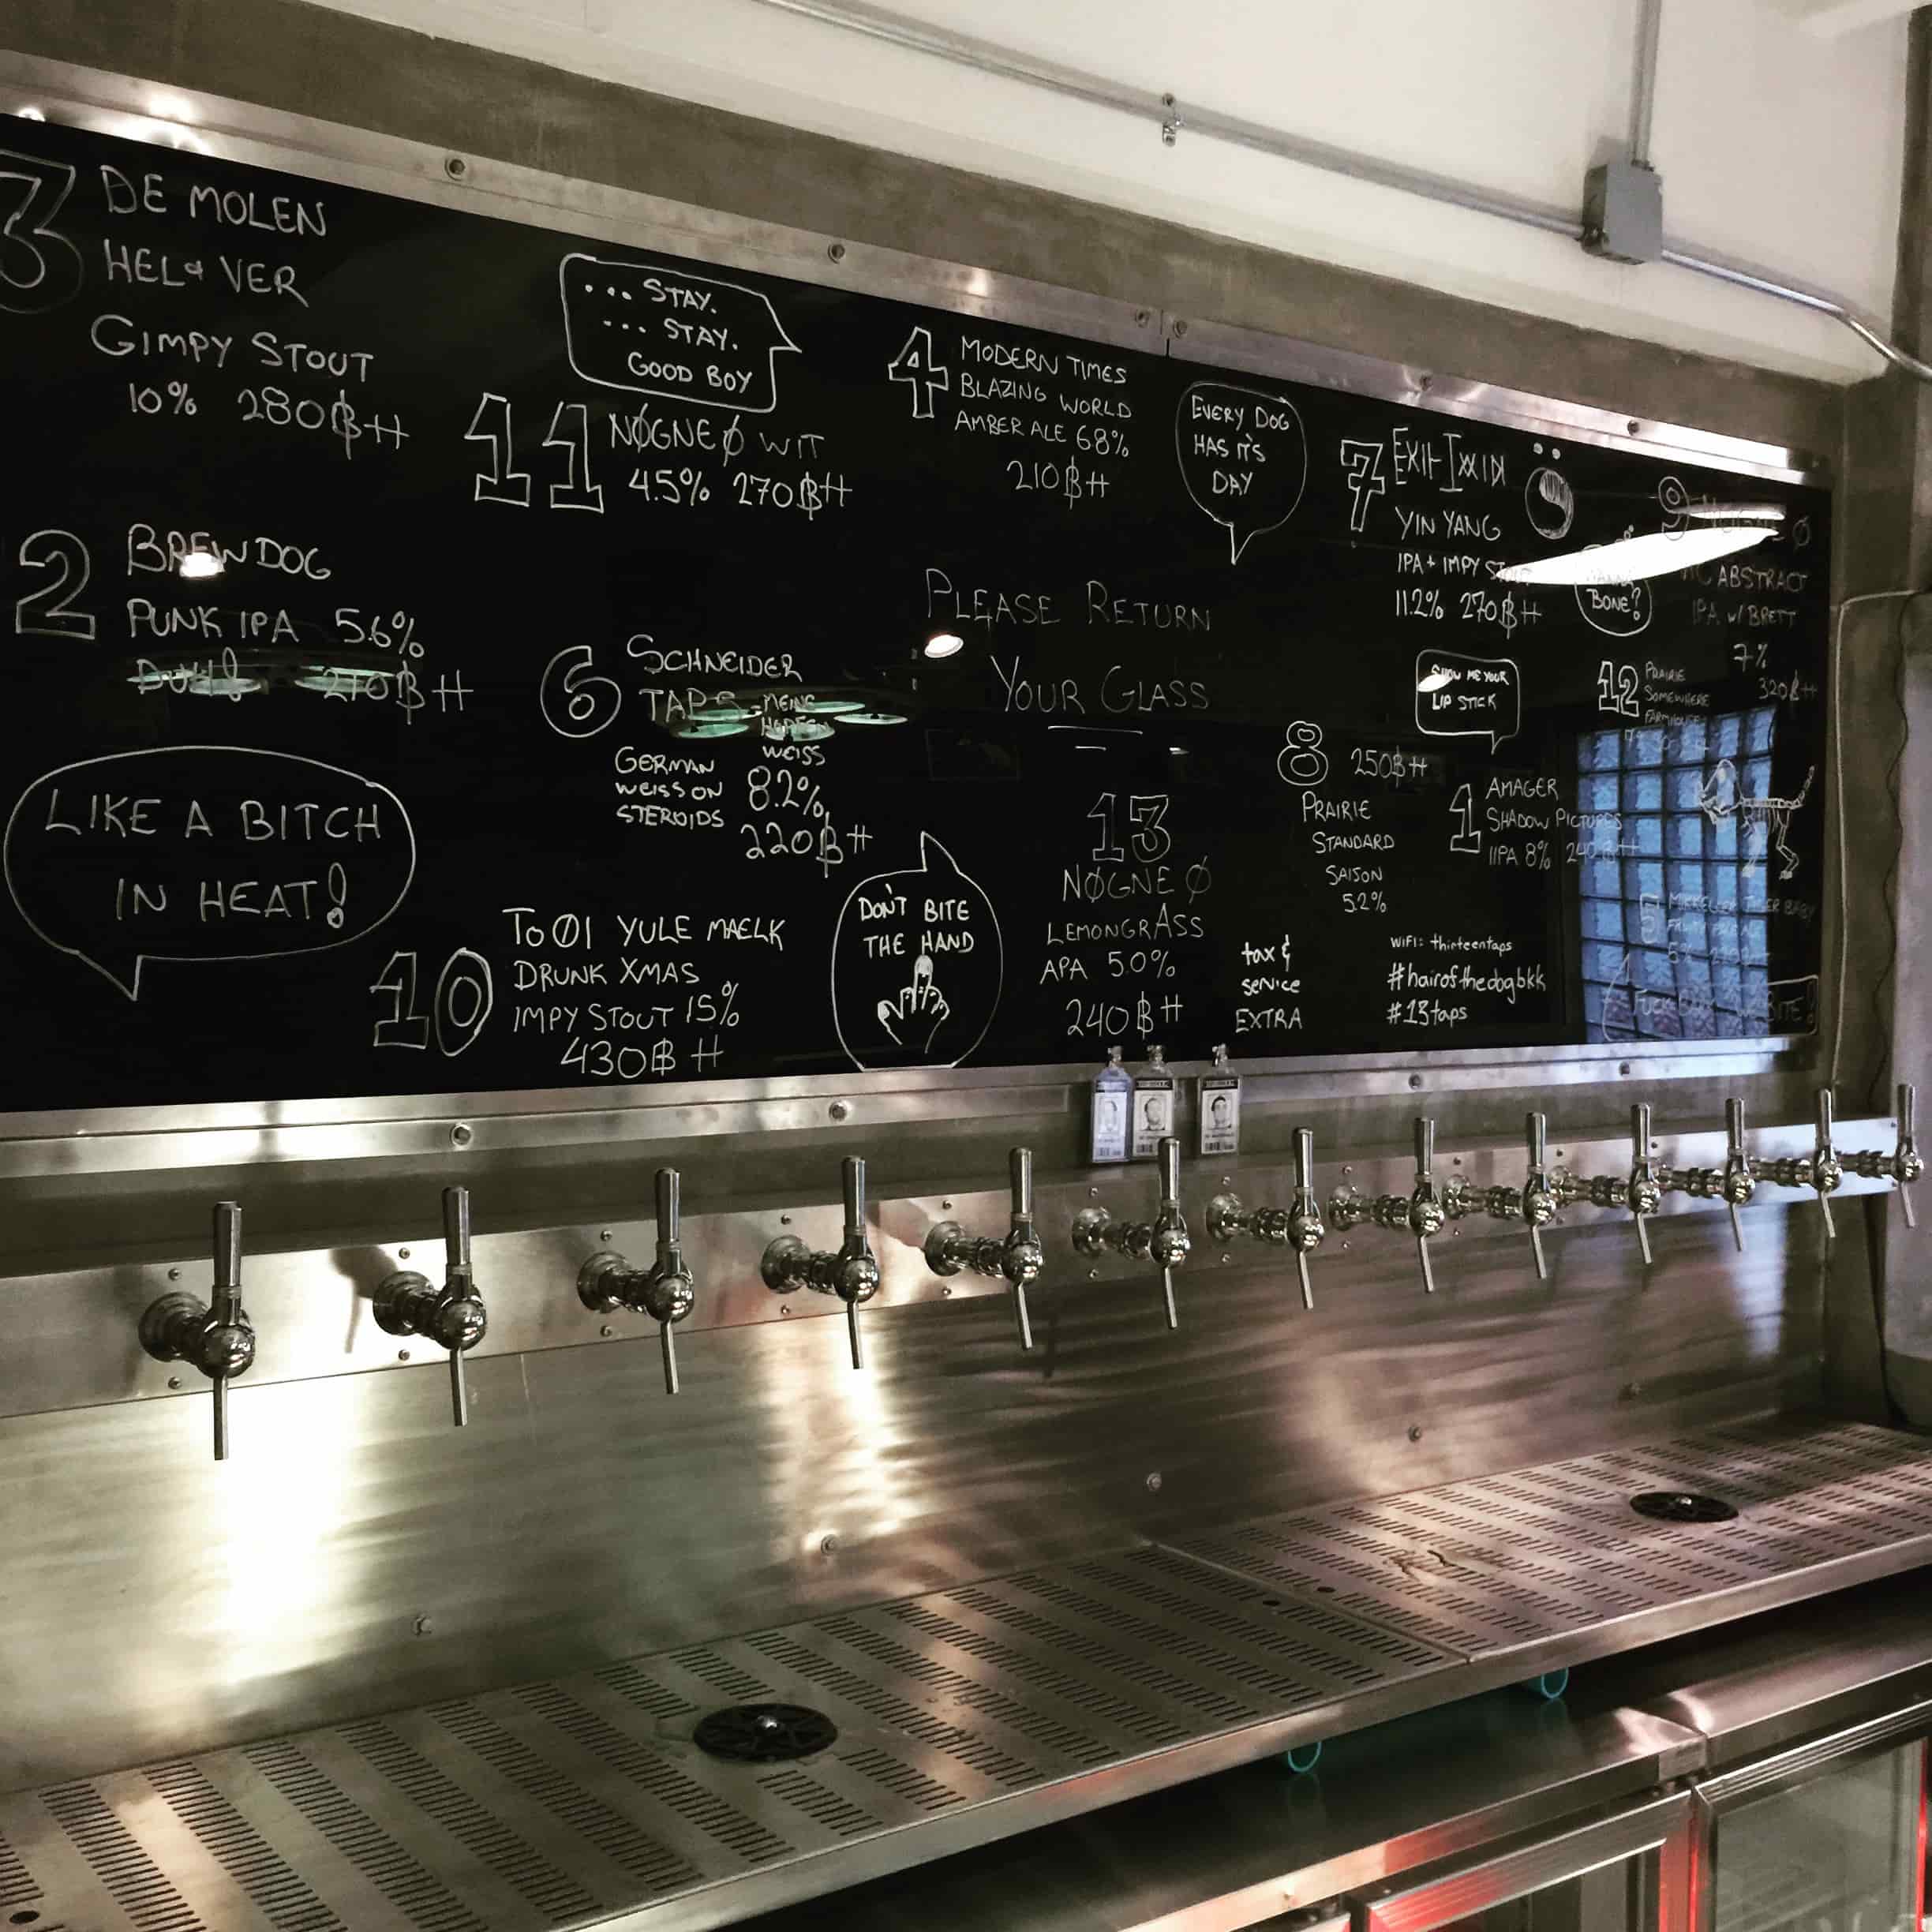 3
DE MOLEN
HEL & VER
GIMPY STOUT
10% 280฿++
2
BREWDOG
PUNK IPA 5.6%
210฿++
LIKE A BITCH
IN HEAT!
... STAY.
... STAY.
GOOD BOY
11
NØGNE Ø WIT
4.5% 270฿++
6
SCHNEIDER
TAP 5 - MEINE
HOPFEN
WEISS
GERMAN
WEISS ON
STEROIDS
8.2%
220฿++
10
TO Ø1 YULE MAELK
DRUNK XMAS
IMPY STOUT 15%
430฿++
DON'T BITE
THE HAND
4
MODERN TIMES
BLAZING WORLD
AMBER ALE 6.8%
210฿++
EVERY DOG
HAS IT'S
DAY
PLEASE RETURN
YOUR GLASS
13
NØGNE Ø
LEMONGRASS
APA 5.0%
240฿++
tax &
service
EXTRA
7
YIN YANG
IPA + IMPY
11.2% 270฿++
BONE?
9
Ø
ABSTRACT
IPA w/ BRETT
7%
320฿++
SHOW ME YOUR
LIP STICK
12
PRAIRIE
SOMEWHERE
FARMHOUSE
8
250฿++
PRAIRIE
STANDARD
SAISON
5.2%
1
AMAGER
SHADOW PICTURES
IIPA 8% 240฿++
5
MIKKELLER
WIFI: thirteentaps
#hairofthedogbkk
#13taps